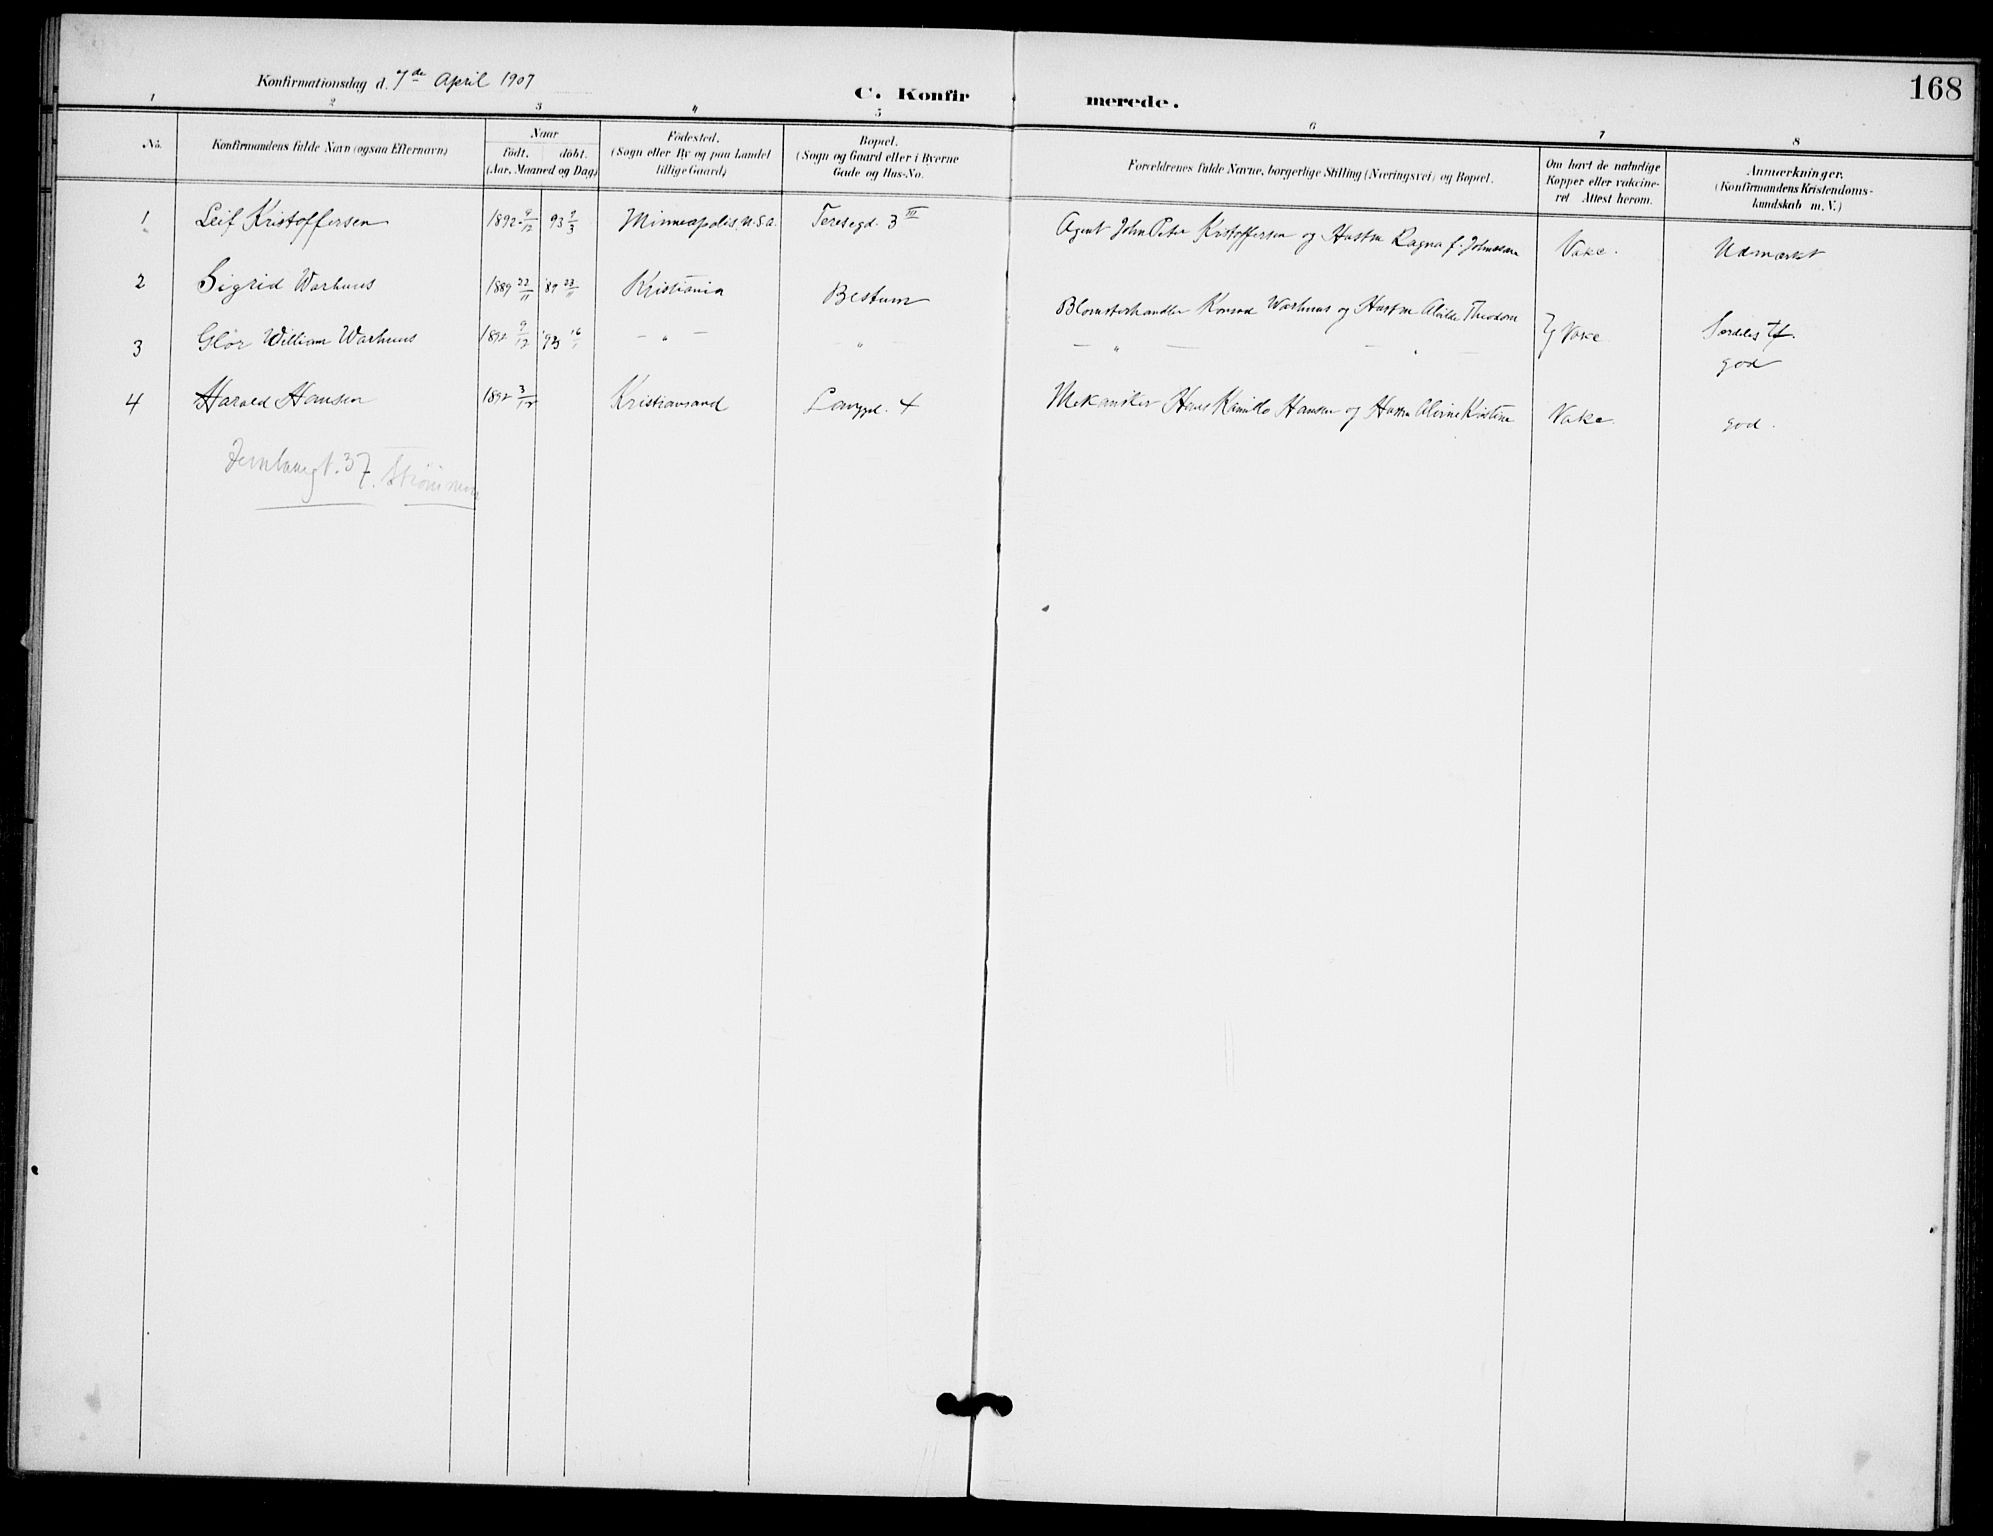 168
Konfirmationsdag d. 7de April 1907
C. Konfirmerede.
1 2 3 4 5 6 7 8
No. Konfirmandens fulde Navn (ogsaa Efternavn) Naar født. døbt. (Aar, Maaned og Dag) Fødested. (Sogn eller By og paa Landet tillige Gaard) Bopæl. (Sogn og Gaard eller i Byerne Gade og Hus-No. Forældrenes fulde Navne, borgerlige Stilling (Næringsvei) og Bopæl. Om havt de naturlige Kopper eller vakcineret Attest herom. Anmærkninger. (Konfirmandens Kristendomskundskab m. V.)
1 Leif Kristoffersen 1892 9/12 93 9/3 Minneapolis, U.S.A. Teresegd. 3 III Agent John Peter Kristoffersen og Hustru Ragna f. Johnsen Vakc. Udmærket
2 Sigrid Warhuus 1889 22/11 89 23/11 Kristiania Bestum Blomsterhandler Konrad Warhuus og Hustru Alvilde Theodora } Vakc. Særdeles
3 Glør William Warhuus 1892 9/12 '93 16/1 — " — — " — — " — — " — god
4 Harald Hansen 1892 3/12 Kristiansand Langgd. 4 Mekaniker Hans Kamillo Hansen og Hustru Alvine Kristine Vakc. god.
37. Strømmen